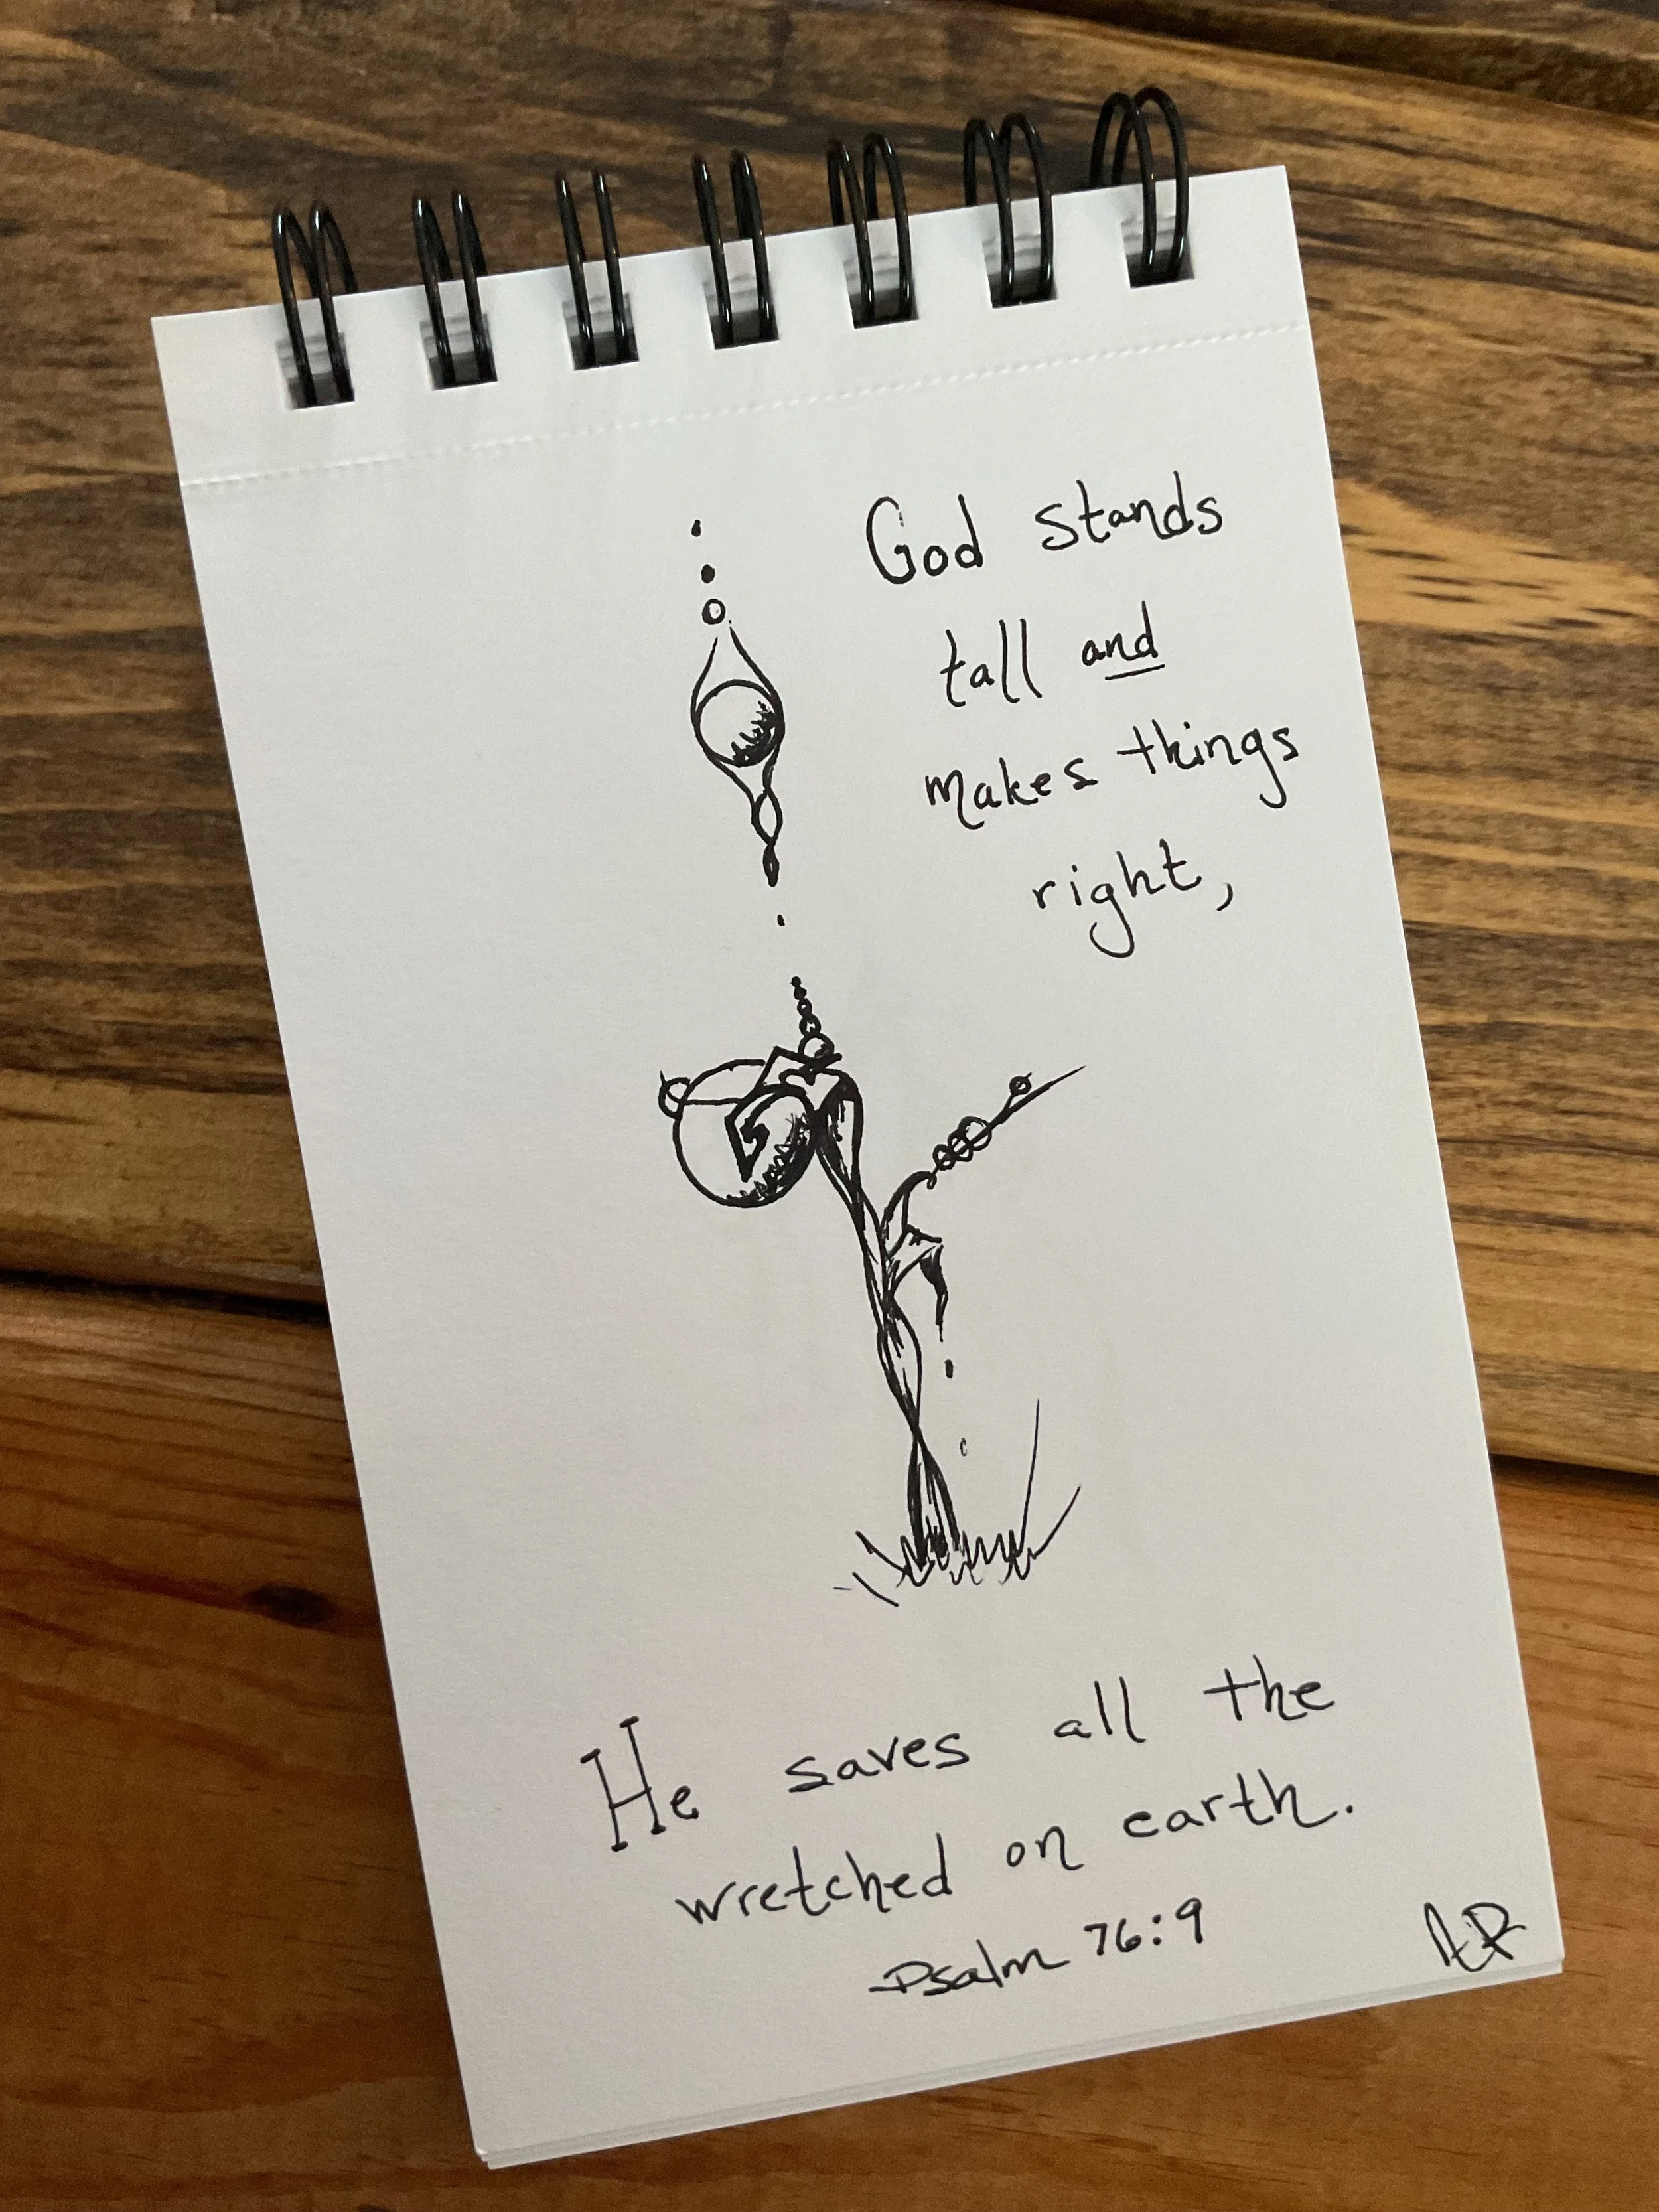 God stands
tall and
makes things
right,
He saves all the
wretched on earth.
Psalm 76:9
AR